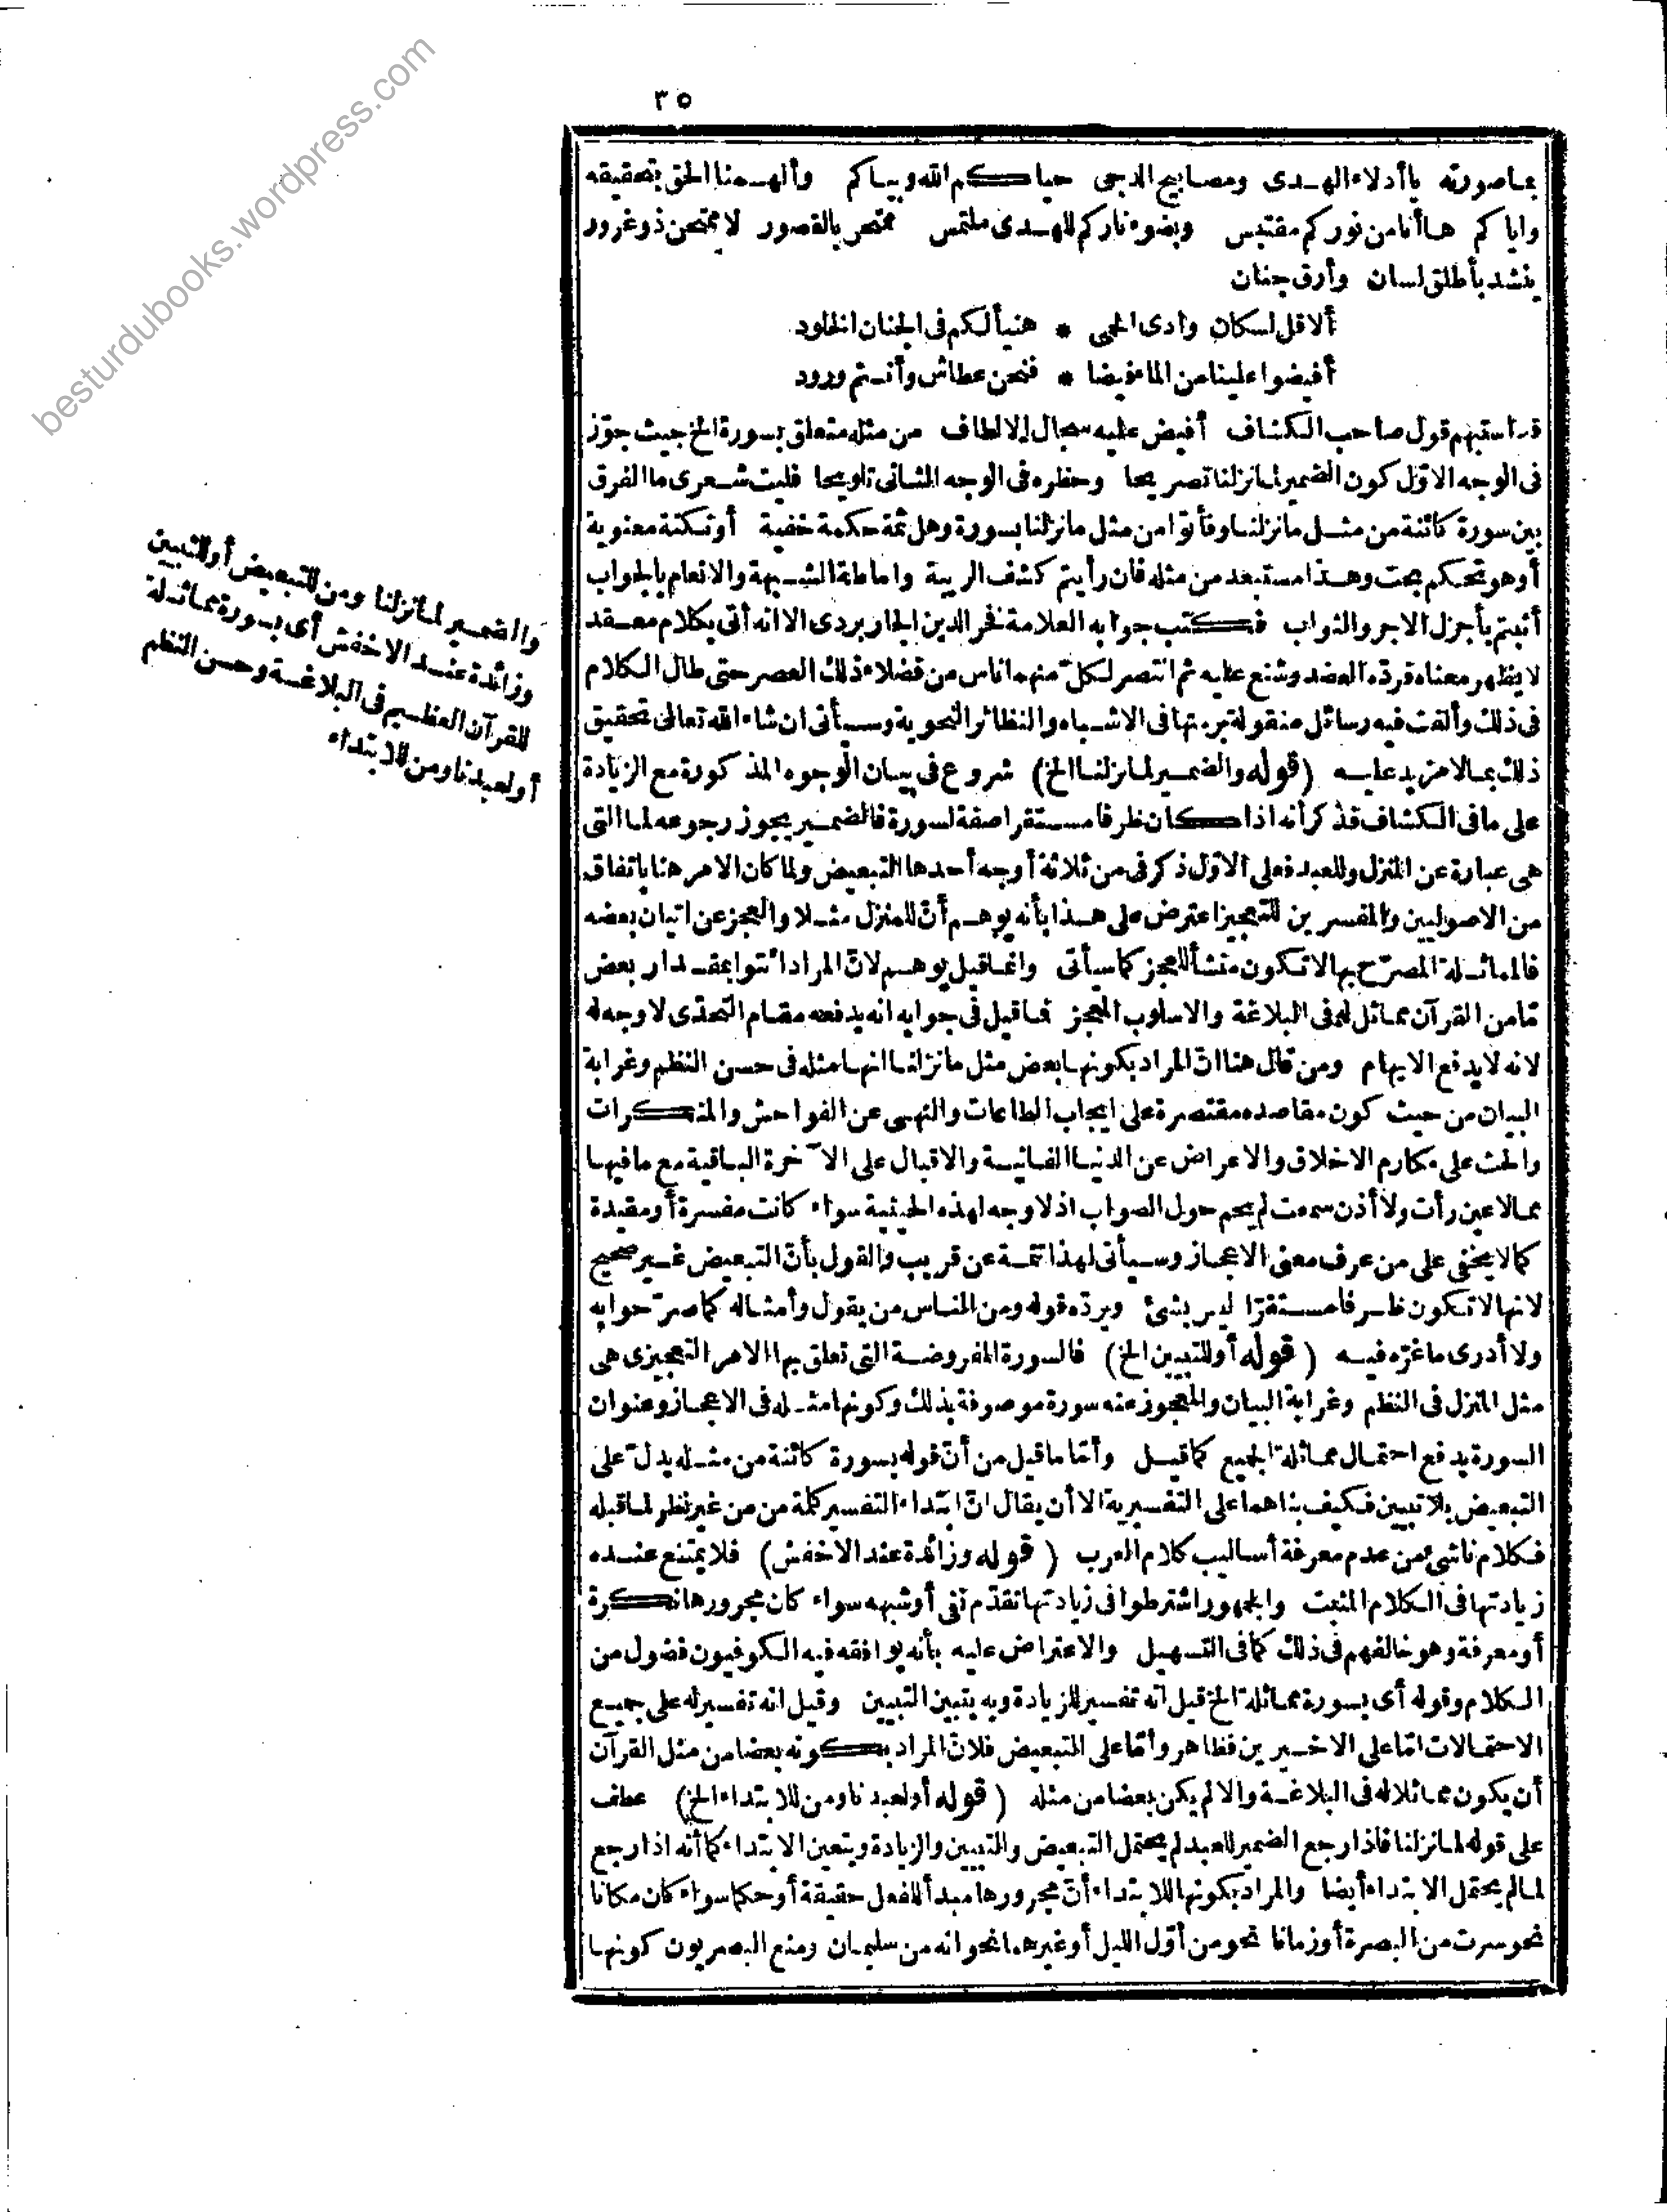 ٣٥
بماصورته يا أدلاء الهدى ومصابيح الدجى حياكم الله وبياكم وألهمنا الحق بتحقيقه
واياكم ها أنا من نوركم مقتبس وبضوء ناركم للهدى ملتمس ممتحن بالقصور لا ممتحن ذو غرور
ينشد بأطلق لسان وأرق جنان
ألا قل لسكان وادى الحمى * هنيأ لكم فى الجنان الخلود
أفيضوا علينا من الماء فيضا * فنحن عطاش وأنتم ورود
قد استبهم قول صاحب الكشاف أفيض عليه سجال الالطاف من مثله متعلق بسورة الخ حيث جوّز
فى الوجه الاوّل كون الضمير لما نزلنا تصريحا وحظره فى الوجه الثانى تلويحا فليت شعرى ما الفرق
بين سورة كائنة من مثل ما نزلنا وفأتوا من مثل ما نزلنا بسورة وهل ثمة حكمة خفية أو نكتة معنوية
أو هو تحكم بحت وهذا مستبعد من مثله فان رأيتم كشف الريبة واماطة الشبهة والانعام بالجواب
أثبتم بأجزل الاجر والثواب فكتب جوابه العلامة فخر الدين الجاربردى الا انه أتى بكلام معقد
لا يظهر معناه فردّه العضد وشنع عليه ثم انتصر لكلّ منهما ناس من فضلاء ذلك العصر حتى طال الكلام
فى ذلك وألفت فيه رسائل منقولة برمتها فى الاشباه والنظائر النحوية وسيأتى ان شاء الله تعالى تحقيق
ذلك بما لا مزيد عليه (قوله والضمير لما نزلنا الخ) شروع فى بيان الوجوه المذكورة مع الزيادة
على ما فى الكشاف فذكر أنه اذا كان ظرفا مستقرا صفة لسورة فالضمير يجوز رجوعه لما التى
هى عبارة عن المنزل وللعبد فعلى الاوّل ذكر فى من ثلاثة أوجه أحدها التبعيض ولما كان الامر هنا باتفاق
من الاصوليين والمفسرين للتعجيز اعترض على هذا بأنه يوهم أنّ للمنزل مثلا والعجز عن اتيان بعضه
فالمماثلة المصرّح بها لا تكون منشأ للعجز كما سيأتى وانما قيل يوهم لانّ المراد ائتوا بمقدار بعض
مّا من القرآن مماثل له فى البلاغة والاسلوب المعجز فما قيل فى جوابه انه يدفعه مقام التحدّى لا وجه له
لانه لا يدفع الايهام ومن قال هنا انّ المراد بكونها بعض مثل ما نزلنا انها مثله فى حسن النظم وغرابة
البيان من حيث كون مقاصده مقتصرة على ايجاب الطاعات والنهى عن الفواحش والمنكرات
والحث على مكارم الاخلاق والاعراض عن الدنيا الفانية والاقبال على الآخرة الباقية مع ما فيها
مما لا عين رأت ولا أذن سمعت لم يحم حول الصواب اذ لا وجه لهذه الحيثية سواء كانت مفسرة أو مقيدة
كما لا يخفى على من عرف معنى الاعجاز وسيأتى لهذا تتمة عن قريب والقول بأنّ التبعيض غير صحيح
لانها لا تكون ظرفا مستقرّا ليس بشئ ويردّه قوله ومن الناس من يقول وأمثاله كما صرّحوا به
ولا أدرى ما غرّه فيه (قوله أو للتبيين الخ) فالسورة المفروضة التى تعلق بها الامر التعجيزى هى
مثل المنزل فى النظم وغرابة البيان والمعجوز عنه سورة موصوفة بذلك وكونها مثله فى الاعجاز وعنوان
السورة يدفع احتمال مماثلة الجميع كما قيل وأمّا ما قيل من أنّ قوله بسورة كائنة من مثله يدلّ على
التبعيض بلا تبيين فكيف بناهما على التفسيرية الا أن يقال انّ ابتداء التفسير كلمة من من غير نظر لما قبله
فكلام ناشئ من عدم معرفة أساليب كلام العرب (قوله وزائدة عند الاخفش) فلا يمتنع عنده
زيادتها فى الكلام المثبت والجمهور اشترطوا فى زيادتها تقدّم نفى أو شبهه سواء كان مجرورها نكرة
أو معرفة وهو خالفهم فى ذلك كما فى التسهيل والاعتراض عليه بأنه يوافقه فيه الكوفيون فضول من
الكلام وقوله أى بسورة مماثلة الخ قيل انه تفسير للزيادة وبه يتبين التبيين وقيل انه تفسير له على جميع
الاحتمالات امّا على الاخيرين فظاهر وأمّا على التبعيض فلانّ المراد بكونه بعضا من مثل القرآن
أن يكون مماثلا له فى البلاغة والا لم يكن بعضا من مثله (قوله أو لعبدنا ومن للابتداء الخ) عطف
على قوله لما نزلنا فاذا رجع الضمير للعبد لم يحتمل التبعيض والتبيين والزيادة ويتعين الابتداء كما أنه اذا رجع
لما لم يحتمل الابتداء أيضا والمراد بكونها للابتداء أنّ مجرورها مبدأ للفعل حقيقة أو حكما سواء كان مكانا
نحو سرت من البصرة أو زمانا نحو من أوّل الليل أو غيرهما نحو انه من سليمان ومنع البصريون كونها
والضمير لما نزلنا ومن للتبعيض أو للتبيين
وزائدة عند الاخفش أى بسورة مماثلة
للقرآن العظيم فى البلاغة وحسن النظم
أو لعبدنا ومن للابتداء
besturdubooks.wordpress.com